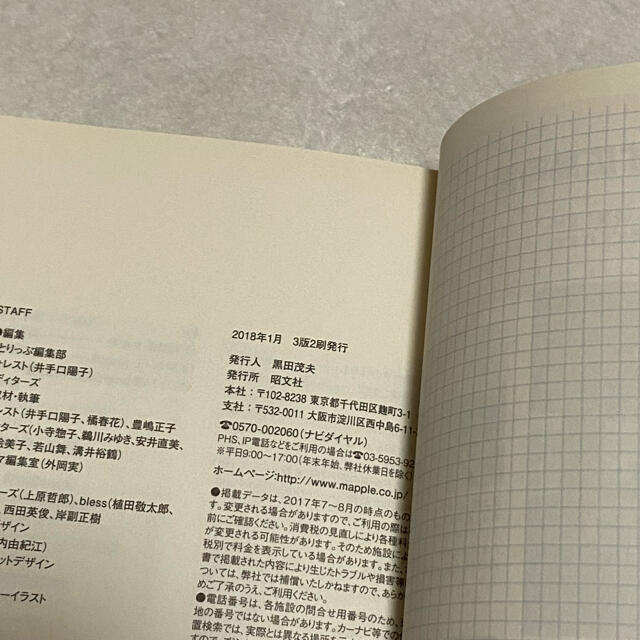 STAFF
●編集
とりっぷ編集部
トレスト(井手口陽子)
ディターズ
取材・執筆
レスト(井手口陽子、橘春花)、豊嶋正子
ターズ(小寺惣子、鵜川みゆき、安井直美、
絵美子、若山舞、溝井裕鶴)
ア編集室(外岡実)
ーズ(上原哲郎)、bless(植田敬太郎、
、西田英俊、岸副正樹
デザイン
内由紀江)
ットデザイン
ーイラスト
2018年1月 3版2刷発行
発行人 黒田茂夫
発行所 昭文社
本社：〒102-8238 東京都千代田区麹町3-1
支社：〒532-0011 大阪市淀川区西中島6-11-
☎0570-002060(ナビダイヤル)
PHS、IP電話などをご利用の場合は☎03-5953-92
※平日9:00〜17:00(年末年始、弊社休業日を除く)
ホームページ:http://www.mapple.co.jp/
●掲載データは、2017年7〜8月の時点のもの
す。変更される場合がありますので、ご利用の際は
前にご確認ください。消費税の見直しにより各種料
が変更される可能性があります。そのため施設によ
税別で料金を表示している場合があります。また、
書で掲載された内容により生じたトラブルや損害等
ついては、弊社では補償いたしかねますので、あらか
めご了承のうえ、ご利用ください。
●電話番号は、各施設の問合せ用番号のため、
地の番号ではない場合があります。カーナビ等での
置検索では、実際とは異なる場所を